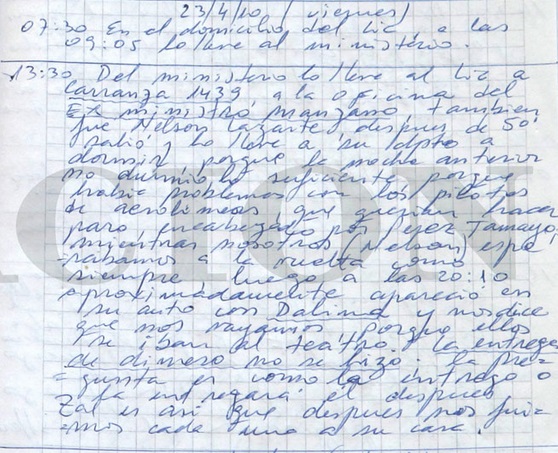 23/4/10 (viernes)
07:30 En el domicilio del Lic, a las
09:05 lo lleve al ministerio.
13:30 Del ministerio lo lleve al Lic a
Carranza 1439, a la oficina del
Ex ministro Manzano, tambien
fue Nelson Lazarte, despues de 50'
salió y lo lleve a su dpto a
dormir, porque la noche anterior
no durmió lo suficiente porque
había problemas con los pilotos
de aerolineas, que querian hacer
paro encabezado por Perez Tamayo.
mientras nosotros (Nelson) espe
-rabamos a la vuelta como
siempre luego a las 20:10
aproximadamente apareció en
su auto con Dalina y nos dice
que nos vayamos porque ellos
se iban al teatro. la entrega
de dinero no se hizo. la pre-
=gunta es como la entrego o
la entregará el despues.
Tal es asi que despues nos fui-
=mos cada uno a su casa.
CION